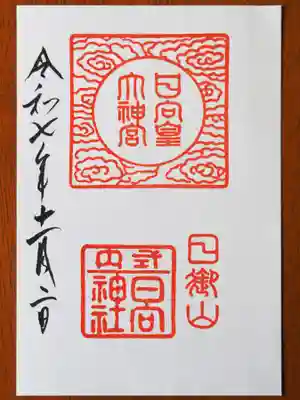 日向皇
大神宮
日御山
式内
日向
神社
令和七年十一月二日